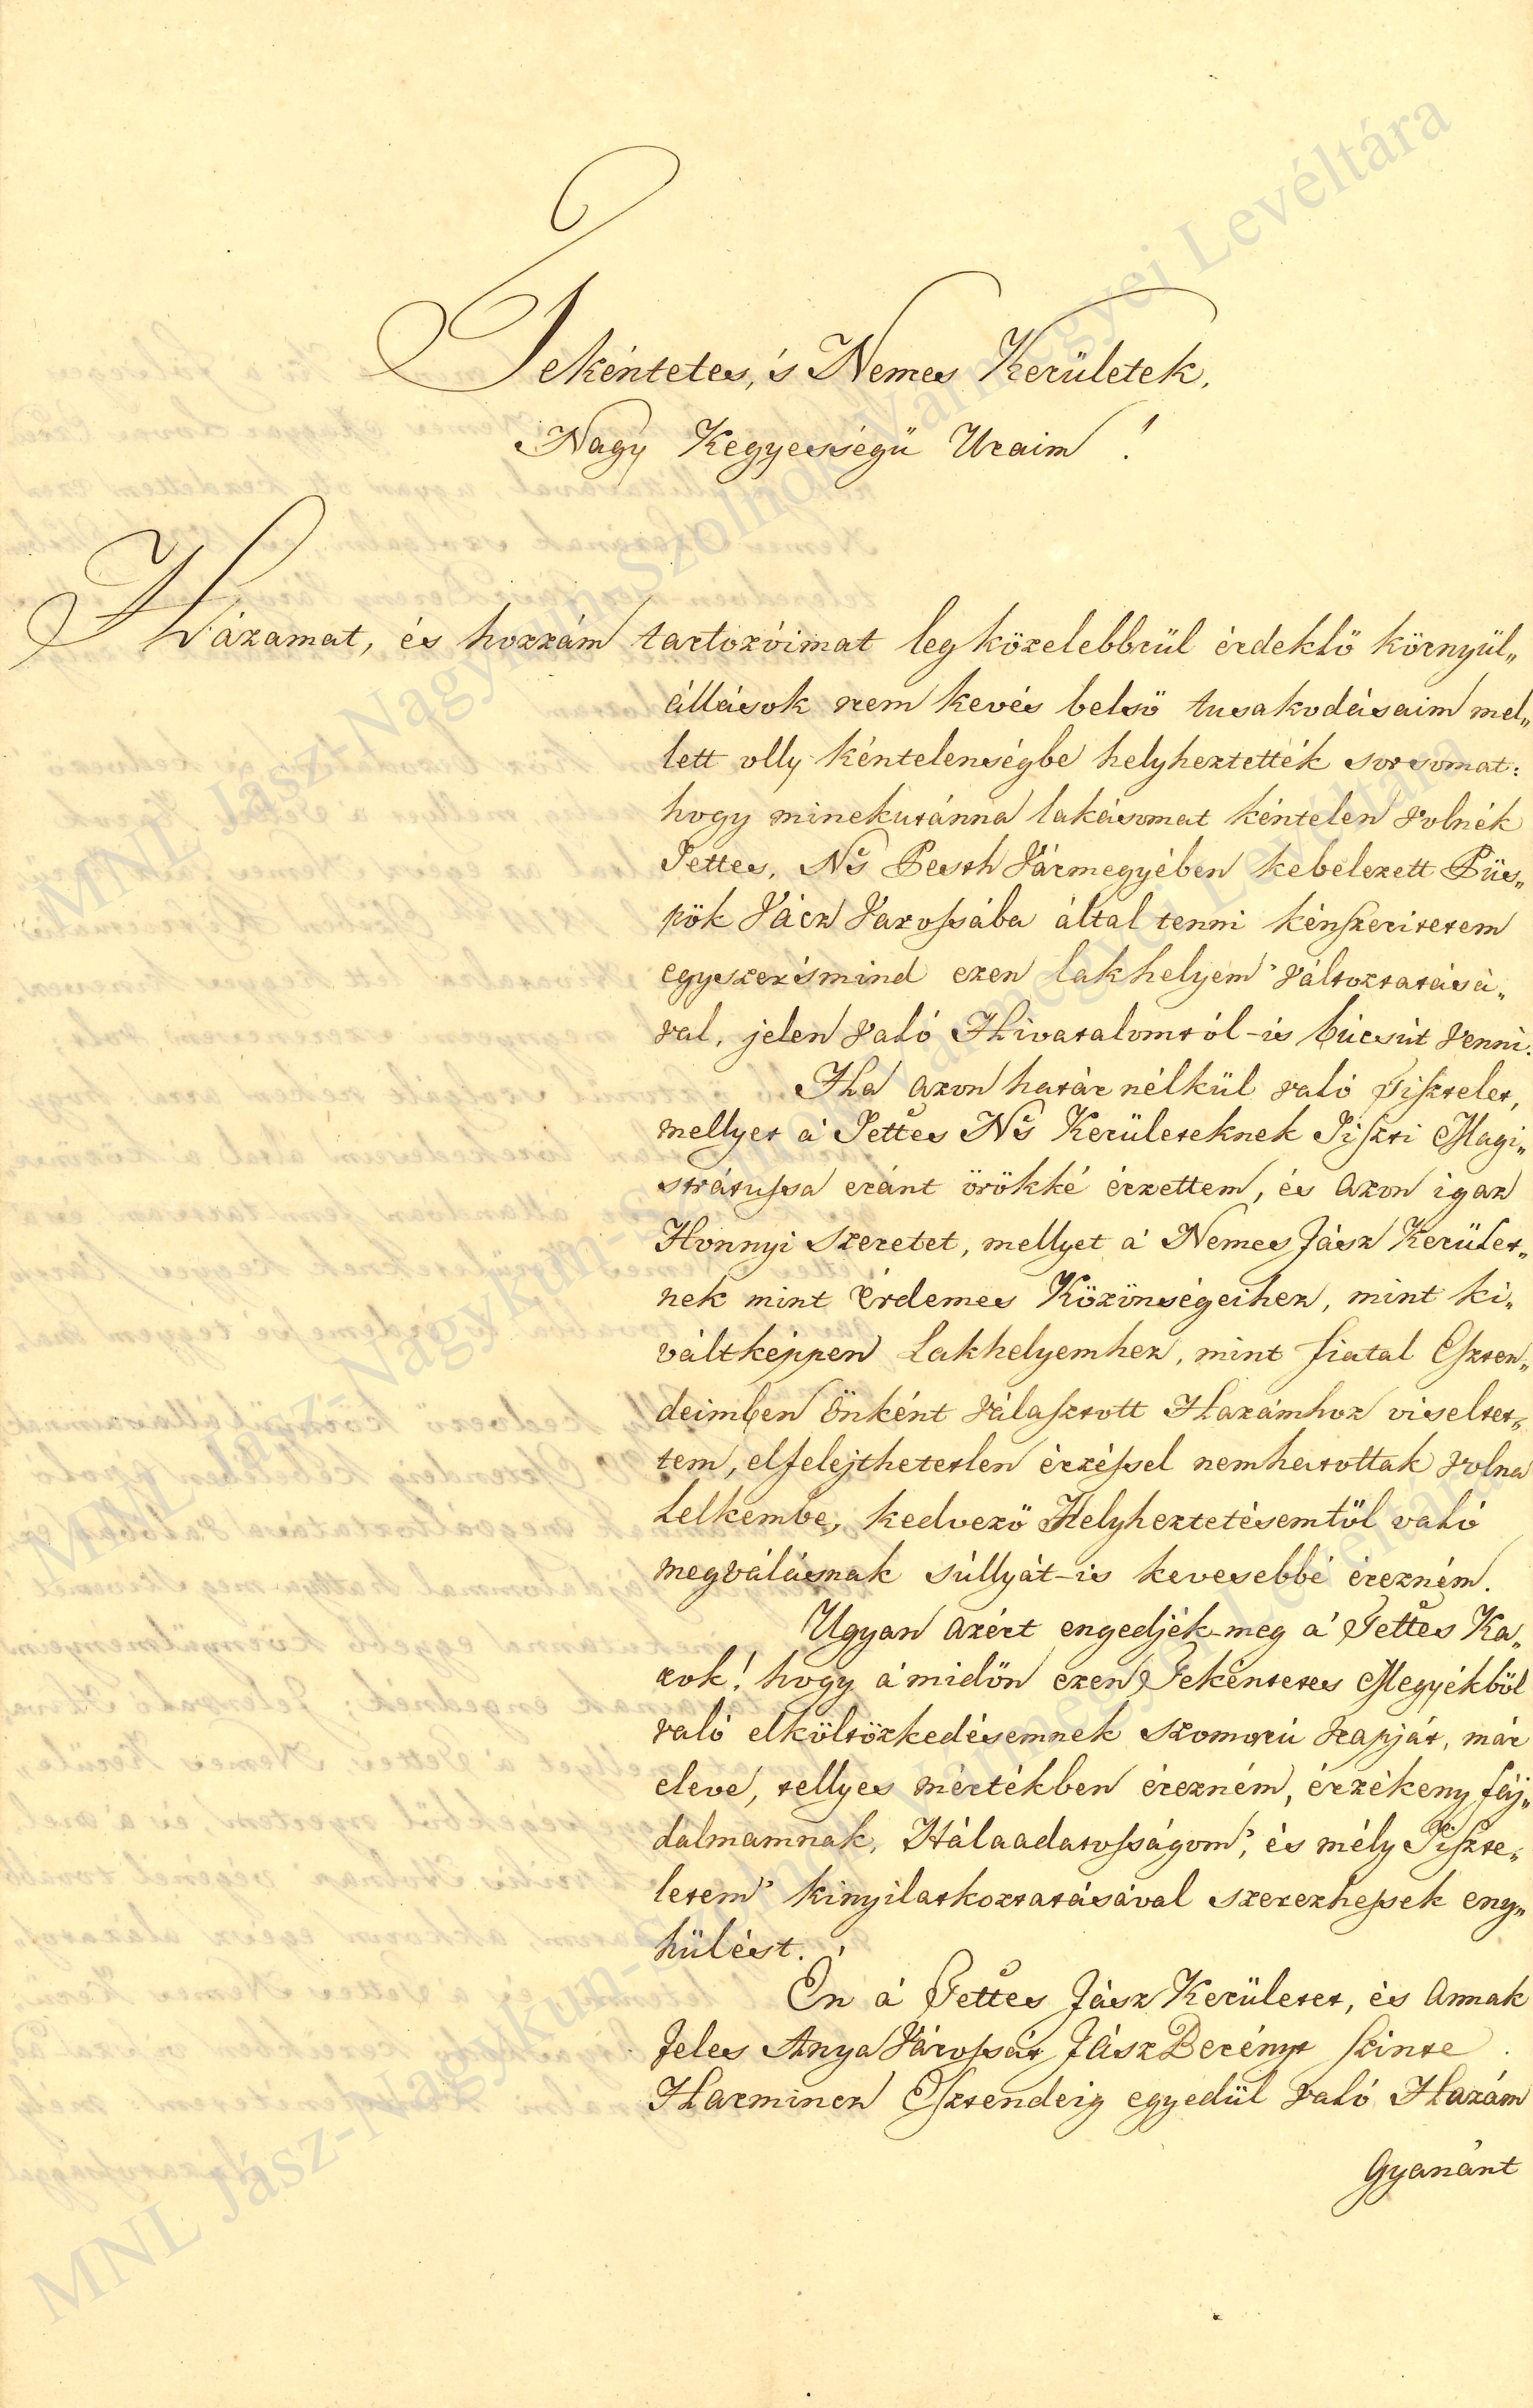 Tekéntetes, 's Nemes Kerületek,
Nagy Kegyességü Uraim!
Házamat, és hozzám tartozóimat legközelebbrül érdeklö környül„
állások nem kevés belsö tusakodásaim mel„
lett olly kéntelenségbe helyheztették sorsomat:
hogy minekutánna lakásomat kéntelen volnék
Tettes, Ns Pesth Vármegyében kebelezett Püs„
pök Vácz Varossába által tenni kénszeritetem
egyszer'smind ezen lakhelyem' változtatásá„
val, jelen való Hivatalomtól-is búcsút venni.
Ha azon határ nélkül való Tisztelet,
mellyet a' Tettes Ns Kerületeknek Tiszti Magi„
strátussa eránt örökké érzettem, és azon igaz
Honnyi szeretet, mellyet a' Nemes Jász Kerület„
nek mint Érdemes Közönségeihez, mint ki„
váltképpen Lakhelyemhez, mint fiatal Eszten„
deimben Önként választott Hazámhoz viseltet„
tem, elfelejthetetlen érzéssel nemhatottak volna
Lelkembe, kedvezö Helyheztetésemtöl való
megválásnak súllyát-is kevesebbé érezném.
Ugyan azért engedjék-meg a' Tettes Ka„
rok! hogy a'midön ezen Tekéntetes Megyékböl
való elköltözkedésemnek szomorú Napját, már
eleve, tellyes mértékben érezném, érzékeny fáj„
dalmamnak, Hálaadatosságom', és mély Tiszte„
letem' kinyilatkoztatásával szerezhessek eny„
hülést.
Én a' Tettes Jász Kerületet, és Annak
Jeles Anya Várossát Jász Berényt szinte
Harmincz Esztendeig egyedül való Hazám
Gyanánt
MNL Jász-Nagykun-Szolnok Vármegyei Levéltára
MNL Jász-Nagykun-Szolnok Vármegyei Levéltára
MNL Jász-Nagykun-Szolnok Vármegyei Levéltára